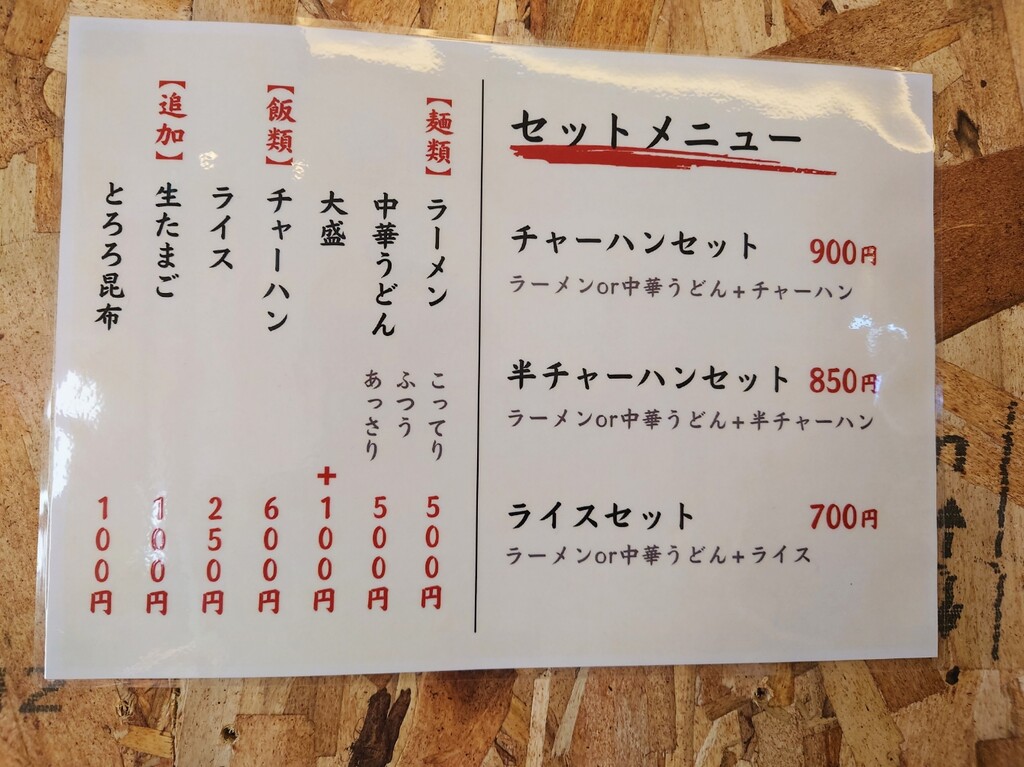 セットメニュー
チャーハンセット 900円
ラーメンor中華うどん+チャーハン
半チャーハンセット 850円
ラーメンor中華うどん+半チャーハン
ライスセット 700円
ラーメンor中華うどん+ライス
【麺類】ラーメン 500円
こってり
ふつう
あっさり
中華うどん 500円
大盛 +100円
【飯類】チャーハン 600円
ライス 250円
【追加】生たまご 100円
とろろ昆布 100円